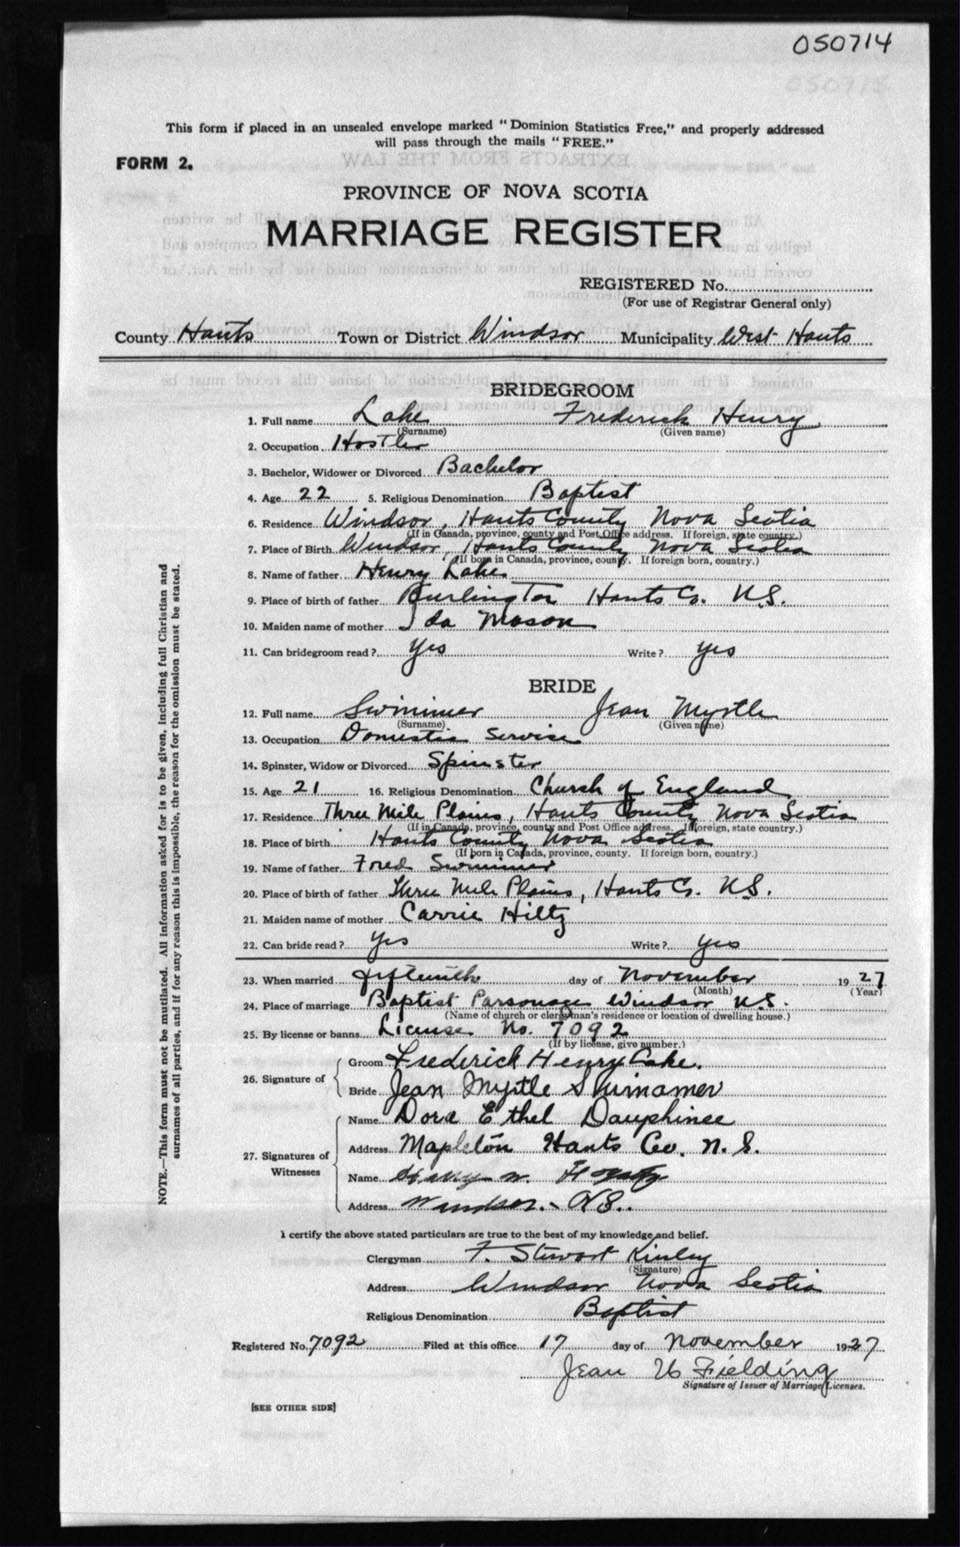 050714
This form if placed in an unsealed envelope marked "Dominion Statistics Free," and properly addressed
will pass through the mails "FREE."
FORM 2.
PROVINCE OF NOVA SCOTIA
MARRIAGE REGISTER
REGISTERED No.
(For use of Registrar General only)
County Hants Town or District Windsor Municipality West Hants
BRIDEGROOM
1. Full name Lake Frederick Henry
(Surname) (Given name)
2. Occupation Hostler
3. Bachelor, Widower or Divorced Bachelor
4. Age 22 5. Religious Denomination Baptist
6. Residence Windsor, Hants County Nova Scotia
(If in Canada, province, county and Post Office address. If foreign, state country.)
7. Place of Birth Windsor, Hants County Nova Scotia
(If born in Canada, province, county. If foreign born, country.)
8. Name of father Henry Lake
9. Place of birth of father Burlington Hants Co. N.S.
10. Maiden name of mother Ida Mason
11. Can bridegroom read? Yes Write? Yes
BRIDE
12. Full name Swimmer Jean Myrtle
(Surname) (Given name)
13. Occupation Domestic Service
14. Spinster, Widow or Divorced Spinster
15. Age 21 16. Religious Denomination Church of England
17. Residence Three Mile Plains, Hants County Nova Scotia
(If in Canada, province, county and Post Office address. If foreign, state country.)
18. Place of birth Hants County Nova Scotia
(If born in Canada, province, county. If foreign born, country.)
19. Name of father Fred Swimmer
20. Place of birth of father Three Mile Plains, Hants Co. N.S.
21. Maiden name of mother Carrie Hiltz
22. Can bride read? Yes Write? Yes
23. When married fifteenth day of November 1927
(Month) (Year)
24. Place of marriage Baptist Parsonage Windsor N.S.
(Name of church or clergyman's residence or location of dwelling house.)
25. By license or banns License No. 7092
(If by license, give number.)
26. Signature of Groom Frederick Henry Lake.
Bride Jean Myrtle
27. Signatures of Witnesses Name Dora Ethel Dauphinee
Address Mapleton Hants Co. N.S.
Name Harry W.
Address Windsor. - N.S.
I certify the above stated particulars are true to the best of my knowledge and belief.
Clergyman F. Stewart Kinley
(Signature)
Address Windsor Nova Scotia
Religious Denomination Baptist
Registered No. 7092 Filed at this office 17 day of November 1927
Jean U Fielding
Signature of Issuer of Marriage Licenses.
[SEE OTHER SIDE]
NOTE.—This form must not be mutilated. All information asked for is to be given, including full Christian and
surnames of all parties, and if for any reason this is impossible, the reason for the omission must be stated.